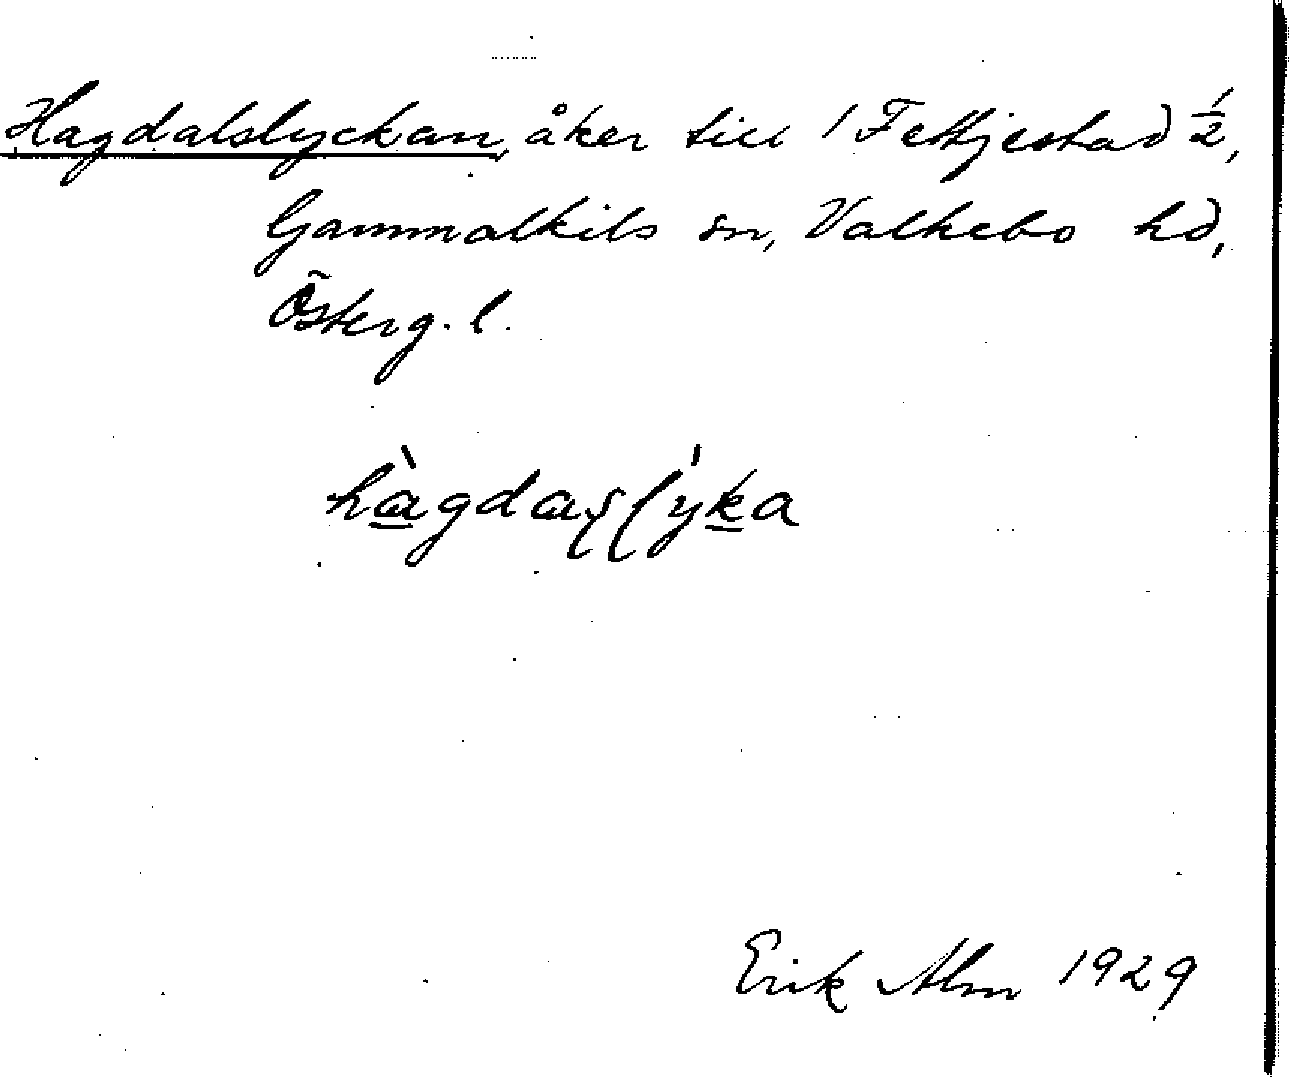 Hagdalslyckan, åker till 1 Fettjestad 1/2,
Gammalkils sn, Valkebo hd,
Österg. l.
Erik Alm 1929